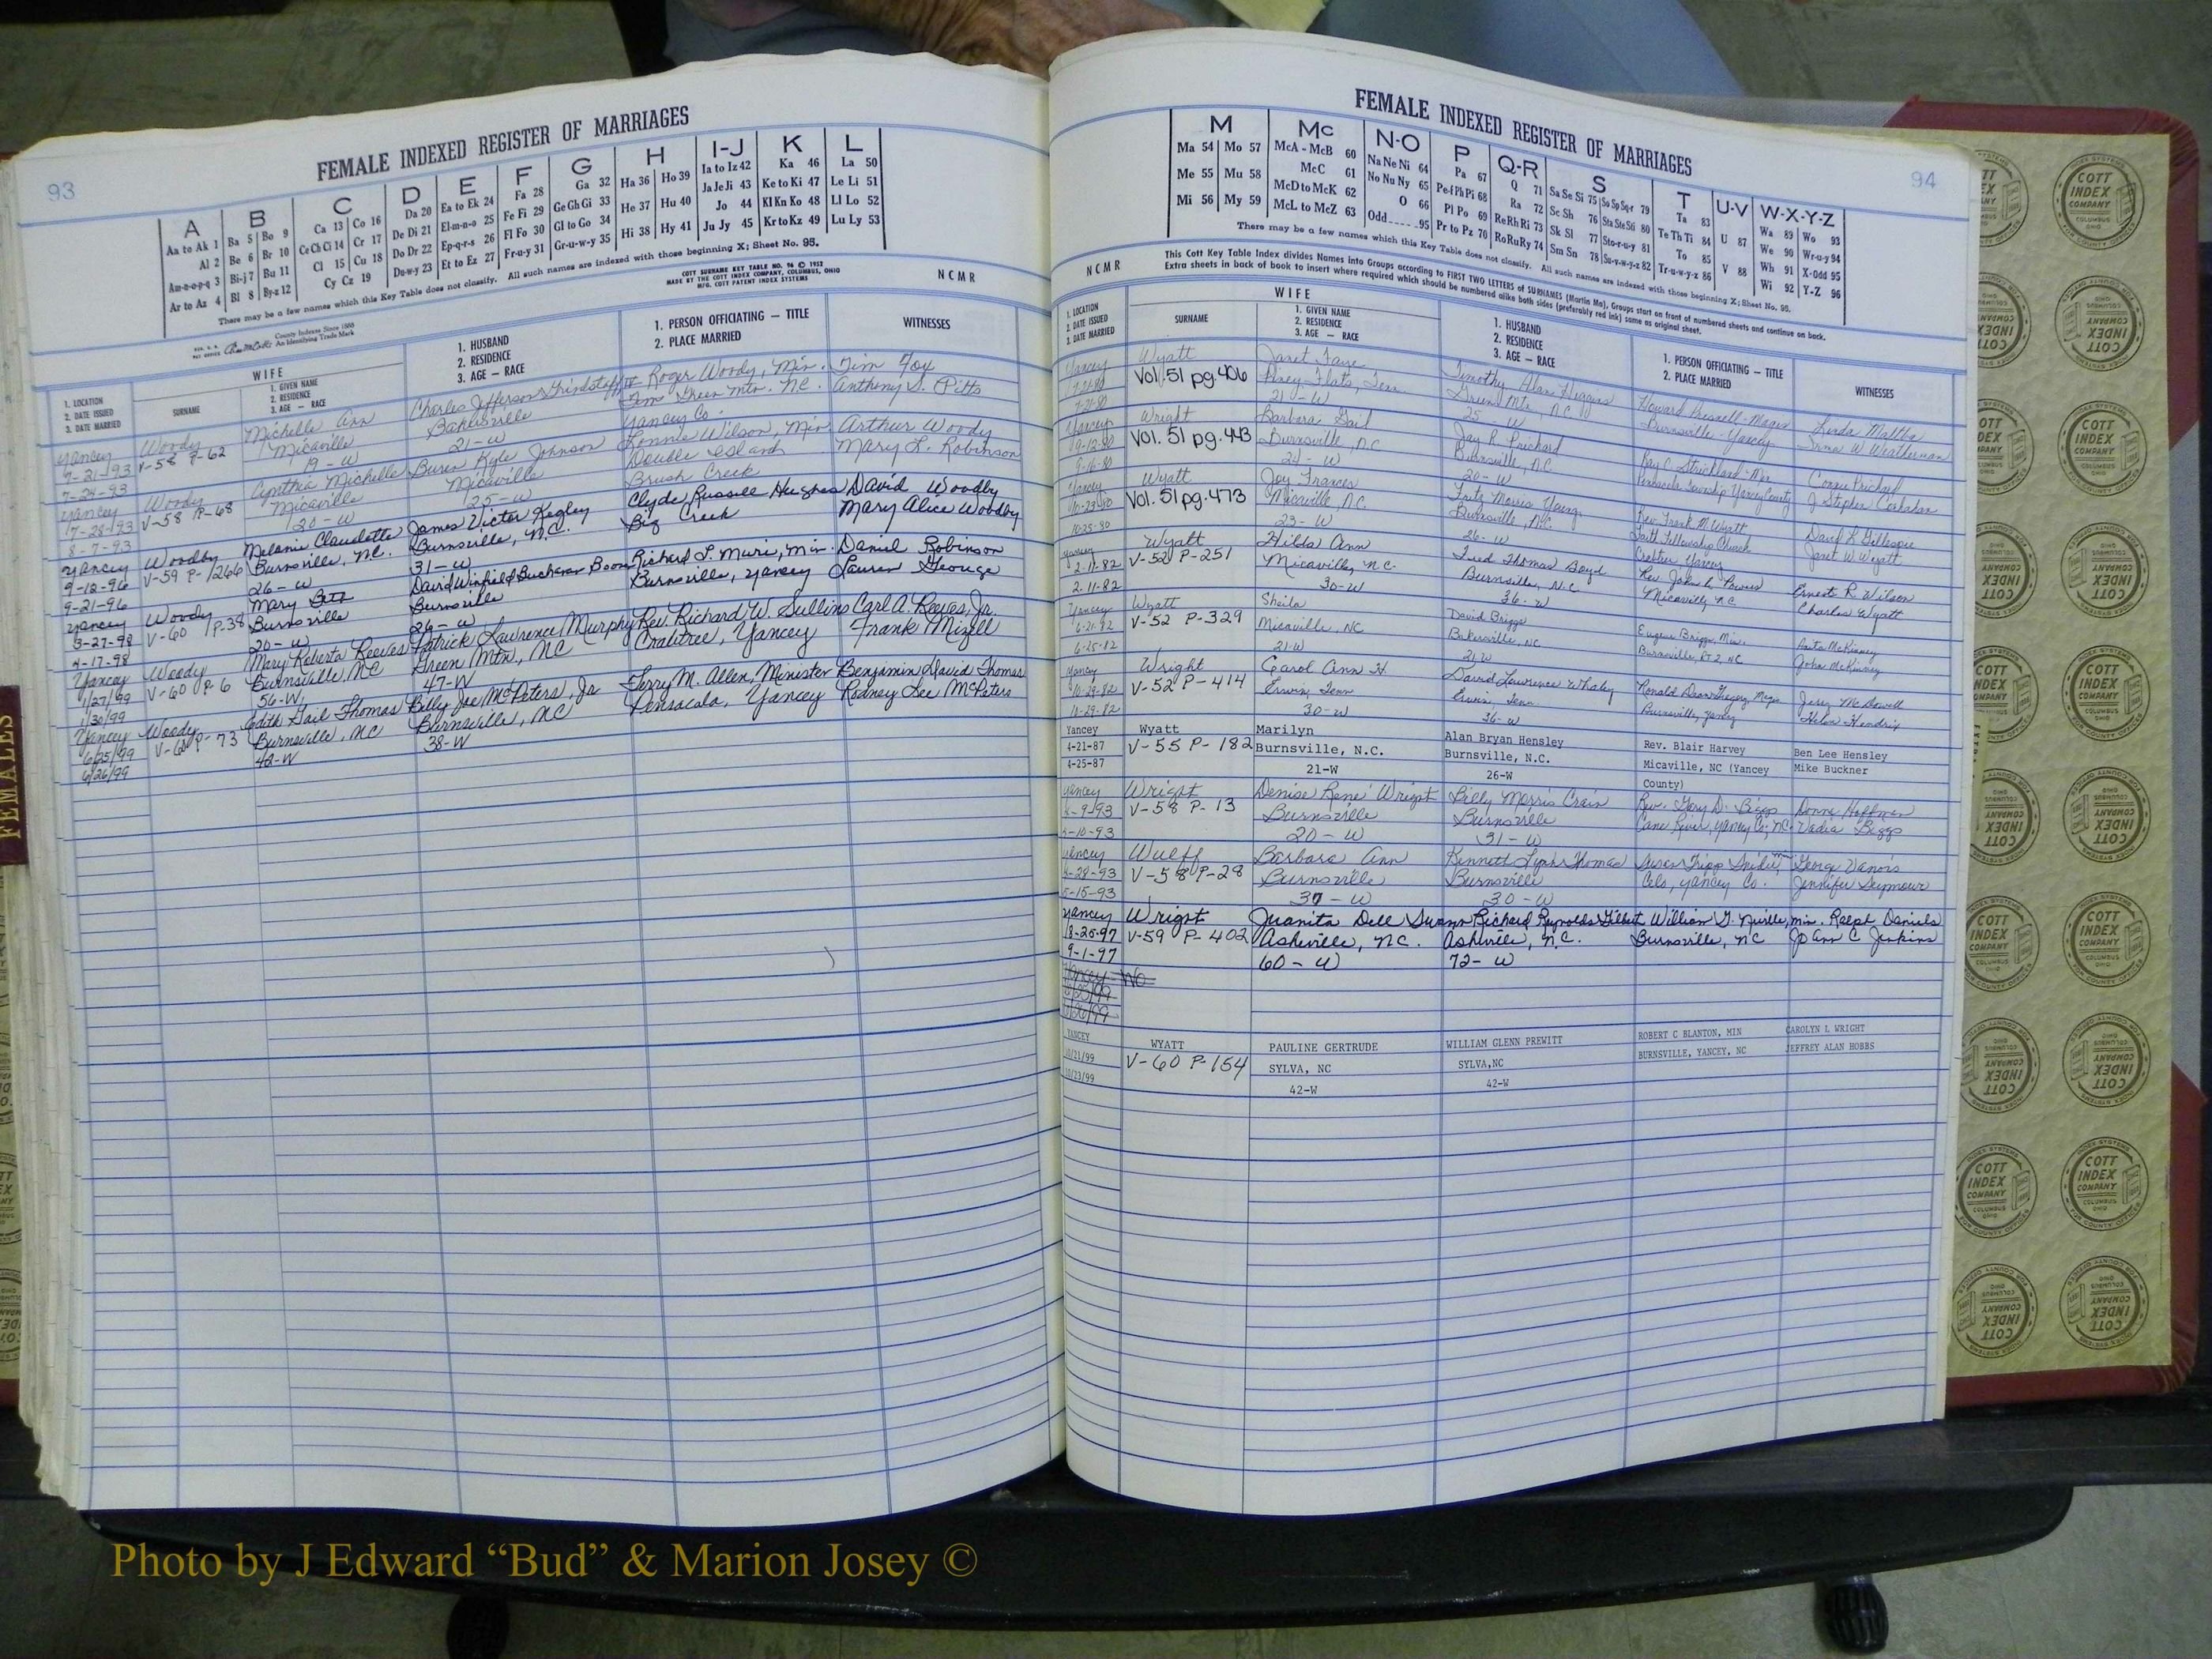 93
FEMALE INDEXED REGISTER OF MARRIAGES
A B C D E F G H I-J K L
Aa to Ak 1 Ba 5 Bo 9 Ca 13 Co 16 Da 20 Ea to Ek 24 Fa 28 Ga 32 Ha 36 Ho 39 Ia to Iz 42 Ka 46 La 50
Al 2 Be 6 Br 10 Ce Ch Ci 14 Cr 17 De Di 21 El-m-n-o 25 Fe Fi 29 Ge Gh Gi 33 He 37 Hu 40 Ja Je Ji 43 Ke to Ki 47 Le Li 51
Am-n-o-p-q 3 Bi-j 7 Bu 11 Cl 15 Cu 18 Do Dr 22 Ep-q-r-s 26 Fl Fo 30 Gl to Go 34 Hi 38 Hy 41 Jo 44 Kl Kn Ko 48 Ll Lo 52
Ar to Az 4 Bl 8 By-z 12 Cy Cz 19 Du-w-y 23 Et to Ez 27 Fr-u-y 31 Gr-u-w-y 35 Ju Jy 45 Kr to Kz 49 Lu Ly 53
There may be a few names which this Key Table does not classify. All such names are indexed with those beginning X; Sheet No. 95.
County Indexes Since 1888
An Identifying Trade Mark
COTT SURNAME KEY TABLE NO. 96 © 1952
MADE BY THE COTT INDEX COMPANY, COLUMBUS, OHIO
MFG. COTT PATENT INDEX SYSTEMS
NCMR
1. LOCATION
2. DATE ISSUED
3. DATE MARRIED
WIFE
SURNAME
1. GIVEN NAME
2. RESIDENCE
3. AGE — RACE
1. HUSBAND
2. RESIDENCE
3. AGE — RACE
1. PERSON OFFICIATING — TITLE
2. PLACE MARRIED
WITNESSES
Yancey Woody Michelle Ann Charles Jefferson Grindstaff IV Roger Woody, Min. Tim Fox
7-21-93 V-58 P-62 Micaville Bakersville Green Mtn. NC. Anthony S. Pitts
7-24-93 19-W 21-W Yancey Co.
Yancey Woody Cynthia Michelle Buren Kyle Johnson Lonnie Wilson, Min Arthur Woody
7-28-93 V-58 P-68 Micaville Micaville Double Island Mary L. Robinson
8-7-93 20-W 25-W Brush Creek
Yancey Woodby Melanie Claudette James Victor Kegley Clyde Russell Hughes David Woodby
9-12-96 V-59 P-266 Burnsville, NC. Burnsville, N.C. Big Creek Mary Alice Woodby
9-21-96 26-W 31-W
Yancey Woody Mary Beth David Winfield Buchanan Boone Richard L. Muri, Min Daniel Robinson
3-27-98 V-60 P-38 Burnsville Burnsville Burnsville, Yancey Lauren George
4-17-98 20-W 26-W
Yancey Woody Mary Roberta Reeves Patrick Lawrence Murphy Rev. Richard W. Sullins Carl A. Reeves, Jr.
1/27/99 V-60 P 6 Burnsville, NC Green Mtn., NC Crabtree, Yancey Frank Mizell
1/30/99 56-W 47-W
Yancey Woody Edith Gail Thomas Billy Joe McPeters, Jr Terry M. Allen, Minister Benjamin David Thomas
6/25/99 V-60 P-73 Burnsville, NC Burnsville, NC Pensacola, Yancey Rodney Lee McPeters
6/26/99 42-W 38-W
94
FEMALE INDEXED REGISTER OF MARRIAGES
M Mc N-O P Q-R S T U-V W-X-Y-Z
Ma 54 Mo 57 McA - McB 60 Na Ne Ni 64 Pa 67 Q 71 Sa Se Si 75 So Sp Sq-r 79 Ta 83 U 87 Wa 89 Wo 93
Me 55 Mu 58 McC 61 No Nu Ny 65 Pe-f Ph Pi 68 Ra 72 Sc Sh 76 Sta Ste Sti 80 Te Th Ti 84 V 88 We 90 Wr-u-y 94
Mi 56 My 59 McD to McK 62 O 66 Pl Po 69 Re Rh Ri 73 Sk Sl 77 Sto-r-u-y 81 To 85 Wh 91 X-Odd 95
McL to McZ 63 Odd 95 Pr to Pz 70 Ro Ru Ry 74 Sm Sn 78 Su-v-w-y-z 82 Tr-u-w-y-z 86 Wi 92 Y-Z 96
There may be a few names which this Key Table does not classify. All such names are indexed with those beginning X; Sheet No. 95.
This Cott Key Table Index divides Names into Groups according to FIRST TWO LETTERS of SURNAMES (Martin Ma). Groups start on front of numbered sheets and continue on back.
Extra sheets in back of book to insert where required which should be numbered alike both sides (preferably red ink) same as original sheet.
NCMR
1. LOCATION
2. DATE ISSUED
3. DATE MARRIED
WIFE
SURNAME
1. GIVEN NAME
2. RESIDENCE
3. AGE — RACE
1. HUSBAND
2. RESIDENCE
3. AGE — RACE
1. PERSON OFFICIATING — TITLE
2. PLACE MARRIED
WITNESSES
Yancey Wyatt Janet Faye Timothy Alan Higgins Howard Presnell - Magis Linda Maltba
Vol. 51 pg. 406 Piney Flats, Tenn Green Mtn, N.C. Burnsville - Yancey W. Weatherman
21-W 25-W
Yancey Wright Barbara Gail Jay R. Prichard Ray C. Strickland - Min Connie Prichard
9-12-80 Vol. 51 pg. 443 Burnsville, N.C. Burnsville, N.C. Pensacola Township Yancey County J. Stephen
24-W 20-W
Yancey Wyatt Joy Frances Morris Young Rev. Frank M. Wyatt David L. Gillespie
10-23-80 Vol. 51 pg. 473 Micaville, N.C. Burnsville, N.C. Faith Fellowship Church Janet W. Wyatt
10-25-80 23-W 26-W Crabtree Yancey
Yancey Wyatt Hilda Ann Fred Thomas Boyd Rev. John L. Powers Ernest R. Wilson
2-11-82 V-52 P-251 Micaville, N.C. Burnsville, N.C Micaville N.C. Charles Wyatt
2-11-82 30-W 36-W
Yancey Wyatt Sheila David Briggs Eugene Briggs, Min. Anita McKinney
6-21-82 V-52 P-329 Micaville, NC Bakersville, NC Burnsville, Rt 2, NC John McKinney
6-25-82 21-W 21-W
Yancey Wright Carol Ann H. David Lawrence Whaley Ronald Dean Mgs. Jerry McDowell
10-29-82 V-52 P-414 Erwin, Tenn Erwin, Tenn Burnsville, Yancey Helen Hendrix
10-29-82 30-W 36-W
Yancey Wyatt Marilyn Alan Bryan Hensley Rev. Blair Harvey Ben Lee Hensley
4-21-87 V-55 P-182 Burnsville, N.C. Burnsville, N.C. Micaville, NC (Yancey Mike Buckner
4-25-87 21-W 26-W County)
Yancey Wright Denise Rene' Wright Billy Morris Crain Rev. Gary D. Biggs Donna Hoffman
-9-93 V-58 P-13 Burnsville Burnsville Cane River, Yancey Co, NC. Vadia Biggs
-10-93 20-W 31-W
Yancey Wulff Barbara Ann Kenneth Thomas Susan Tripp
4-28-93 V-58 P-28 Burnsville Burnsville Celo, Yancey Co. Jennifer Seymour
5-15-93 37-W 30-W
Yancey Wright Juanita Dell Swann Richard Reynolds Gilbert William G. Neville, min. Ralph Daniels
8-20-97 V-59 P-402 Asheville, NC. Asheville, N.C. Burnsville, NC Jo Ann C Jenkins
9-1-97 60-W 72-W
Yancey Wo
6/25/99
6/26/99
YANCEY WYATT PAULINE GERTRUDE WILLIAM GLENN PREWITT ROBERT C BLANTON, MIN CAROLYN L WRIGHT
10/21/99 V-60 P-154 SYLVA, NC SYLVA,NC BURNSVILLE, YANCEY, NC JEFFREY ALAN HOBBS
10/23/99 42-W 42-W
FEMALES
COTT INDEX COMPANY
COLUMBUS OHIO
Photo by J Edward “Bud” & Marion Josey ©